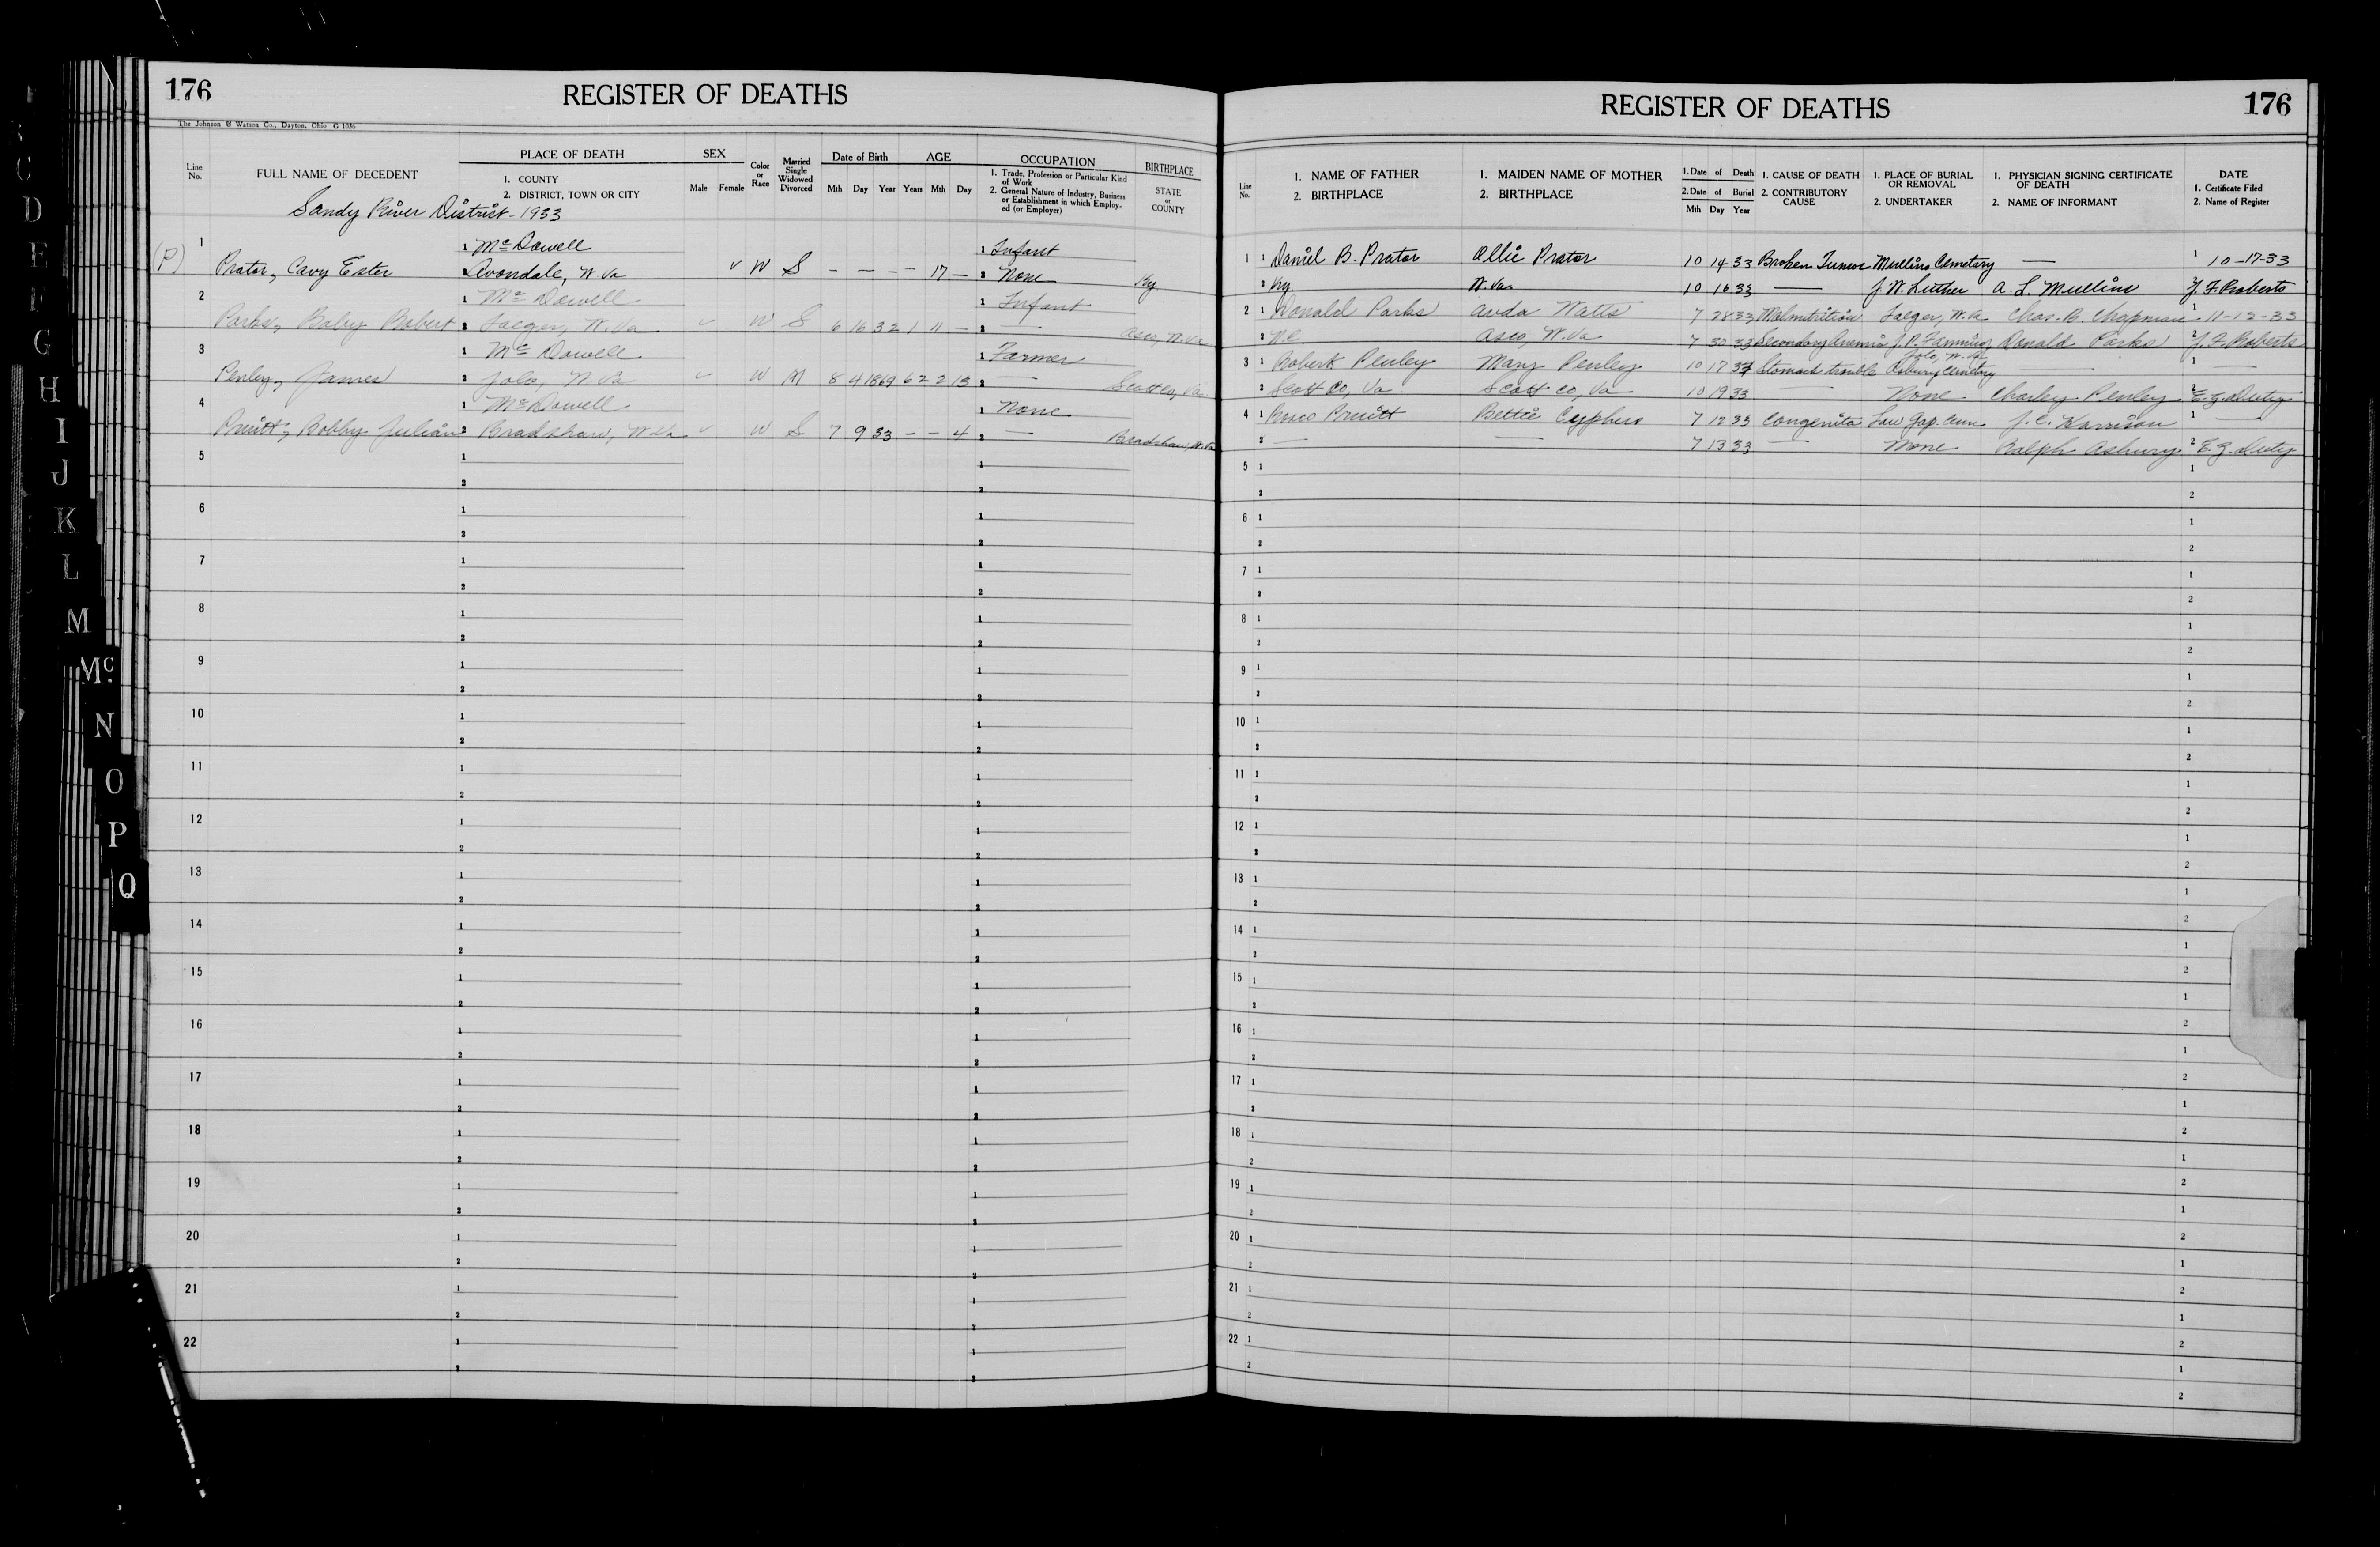 176
REGISTER OF DEATHS
The Johnson & Watson Co., Dayton, Ohio G 1036
Line No.
FULL NAME OF DECEDENT
PLACE OF DEATH
1. COUNTY
2. DISTRICT, TOWN OR CITY
SEX
Male Female
Color or Race
Married Single Widowed Divorced
Date of Birth
Mth Day Year
AGE
Years Mth Day
OCCUPATION
1. Trade, Profession or Particular Kind of Work
2. General Nature of Industry, Business or Establishment in which Employed (or Employer)
BIRTHPLACE
STATE or COUNTY
Sandy River District - 1933
(P)
1 1 McDowell 1 Infant
Prater, Cavy Ester 2 Avondale, W. Va ✓ W S - - - - 17 - 2 None Ky
2 1 McDowell 1 Infant
Parks, Baby Robert 2 Iaeger, W. Va ✓ W S 6 16 32 1 11 - 2 - Asco, W. Va
3 1 McDowell 1 Farmer
Penley, James 2 Jolo, W Va ✓ W M 8 4 1869 62 2 13 2 - Scott Co, Va
4 1 McDowell 1 None
Pruitt, Bobby Julian 2 Bradshaw, W. Va ✓ W S 7 9 33 - - 4 2 - Bradshaw, W. Va
5 1
2
6 1
2
7 1
2
8 1
2
9 1
2
10 1
2
11 1
2
12 1
2
13 1
2
14 1
2
15 1
2
16 1
2
17 1
2
18 1
2
19 1
2
20 1
2
21 1
2
22 1
2
C
D
E
F
G
H
I
J
K
L
M
Mc
N
O
P
Q
REGISTER OF DEATHS
176
Line No.
1. NAME OF FATHER
2. BIRTHPLACE
1. MAIDEN NAME OF MOTHER
2. BIRTHPLACE
1. Date of Death
2. Date of Burial
Mth Day Year
1. CAUSE OF DEATH
2. CONTRIBUTORY CAUSE
1. PLACE OF BURIAL OR REMOVAL
2. UNDERTAKER
1. PHYSICIAN SIGNING CERTIFICATE OF DEATH
2. NAME OF INFORMANT
DATE
1. Certificate Filed
2. Name of Register
1 1 Daniel B. Prater Ollie Prater 10 14 33 Broken Mullins Cemetary - 1 10-17-33
2 Ky. W. Va 10 16 33 - J. W. Luther A. L Mullins J. F. Roberts
2 1 Donald Parks Avda Watts 7 28 33 Malnutrition Iaeger, W. Va Chas. B. Chapman 11-12-33
2 N.C. Asco, W. Va 7 30 33 Secondary Anemia J. P. Fanning Donald Parks 2 J. F. Roberts
Jolo, W. Va
3 1 Robert Penley Mary Penley 10 17 33 Stomach trouble Asbury Cemetary - 1 -
2 Scott Co, Va Scott Co, Va 10 19 33 - None Charley Penley 2 E. Z. Duty
4 1 Pruitt Bettie Cyphus 7 12 33 Congenita Low Gap. Cem J. C. Harrison 1 -
2 - - 7 13 33 - None Ralph Asbury 2 E. Z. Duty
5 1
2
6 1
2
7 1
2
8 1
2
9 1
2
10 1
2
11 1
2
12 1
2
13 1
2
14 1
2
15 1
2
16 1
2
17 1
2
18 1
2
19 1
2
20 1
2
21 1
2
22 1
2